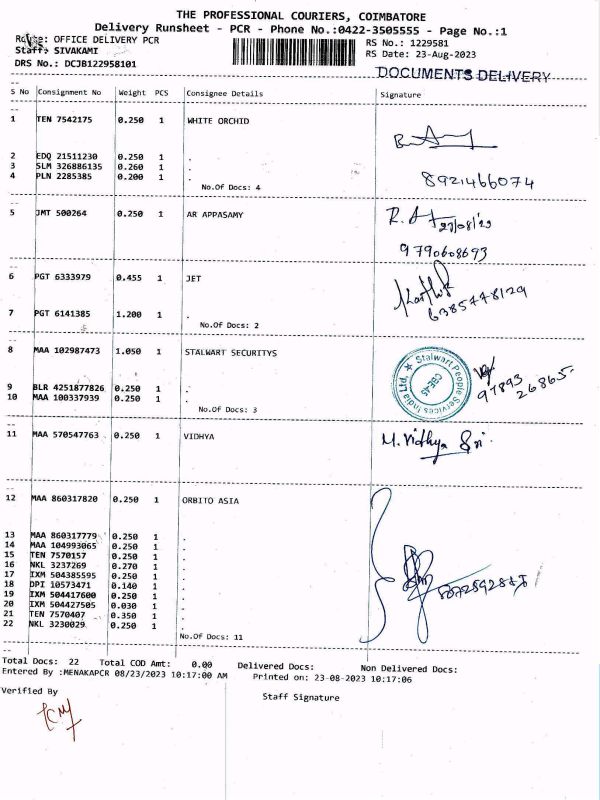 THE PROFESSIONAL COURIERS, COIMBATORE
Delivery Runsheet - PCR - Phone No.:0422-3505555 - Page No.:1
OFFICE DELIVERY PCR
RS No.: 1229581
Staff: SIVAKAMI
RS Date: 23-Aug-2023
DRS No.: DCJB122958101
DOCUMENTS DELIVERY
S No Consignment No Weight PCS Consignee Details Signature
1 TEN 7542175 0.250 1 WHITE ORCHID
2 EDQ 21511230 0.250 1 .
3 SLM 326886135 0.260 1 .
4 PLN 2285385 0.200 1 .
8921466074
No.Of Docs: 4
5 JMT 500264 0.250 1 AR APPASAMY
9790608693
6 PGT 6333979 0.455 1 JET
Karthik
7 PGT 6141385 1.200 1 .
No.Of Docs: 2
8 MAA 102987473 1.050 1 STALWART SECURITYS
Stalwart People Services India Ltd.
97893 26865
9 BLR 4251877826 0.250 1 .
10 MAA 100337939 0.250 1 .
No.Of Docs: 3
11 MAA 570547763 0.250 1 VIDHYA
M. Vidhya Sri
12 MAA 860317820 0.250 1 ORBITO ASIA
13 MAA 860317779 0.250 1 .
14 MAA 104993065 0.250 1 .
15 TEN 7570157 0.250 1 .
16 NKL 3237269 0.270 1 .
17 IXM 504385595 0.250 1 .
18 DPI 10573471 0.140 1 .
19 IXM 504417600 0.250 1 .
20 IXM 504427505 0.030 1 .
21 TEN 7570407 0.350 1 .
22 NKL 3230029 0.250 1 .
No.Of Docs: 11
Total Docs: 22 Total COD Amt: 0.00 Delivered Docs: Non Delivered Docs:
Entered By :MENAKAPCR 08/23/2023 10:17:00 AM Printed on: 23-08-2023 10:17:06
Verified By
Staff Signature